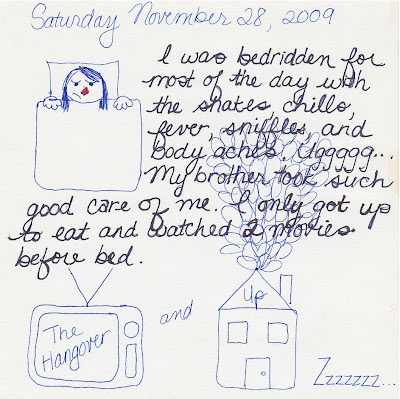 Saturday November 28, 2009
I was bedridden for
most of the day with
the shakes, chills,
fever, sniffles, and
body aches. Uggggg...
My brother took such
good care of me. I only got up
to eat and watched 2 movies
before bed.
The
Hangover
and
Up
Zzzzzzz...